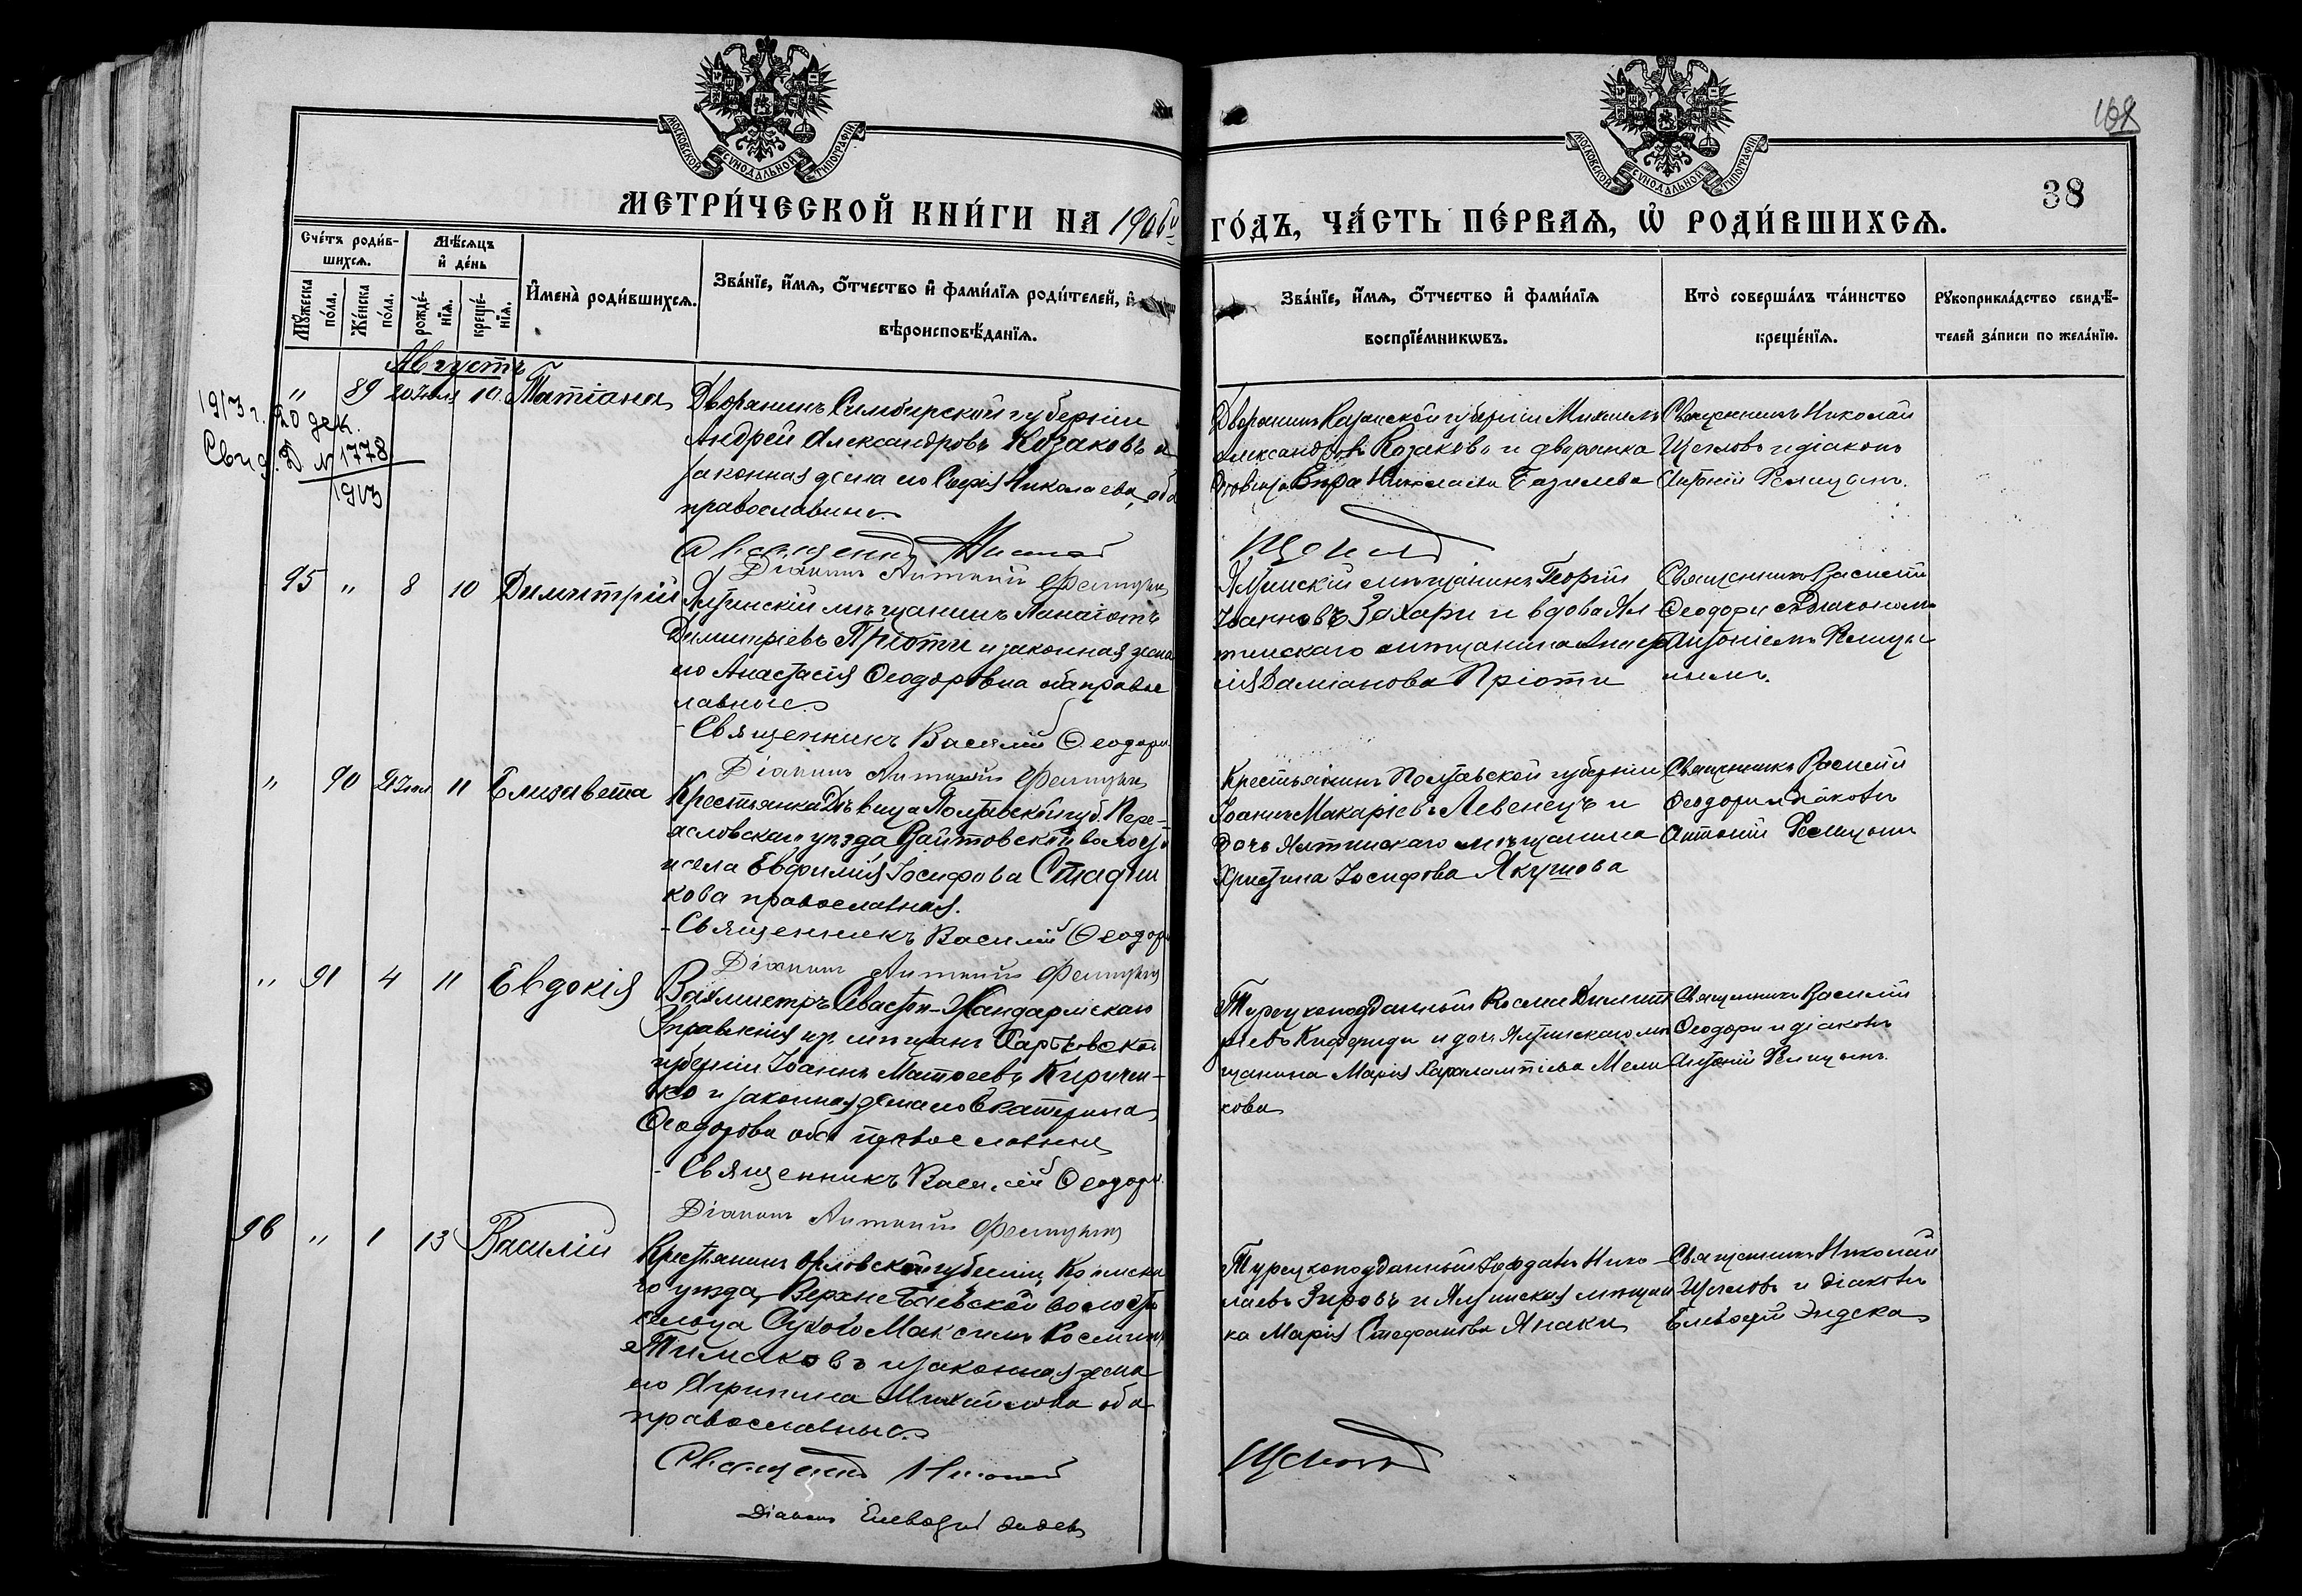 МОСКОВСКОЙ СѴНОДАЛЬНОЙ ТИПОГРАФІИ
МОСКОВСКОЙ СѴНОДАЛЬНОЙ ТИПОГРАФІИ
38
МЕТРИ́ЧЕСКОЙ КНИ́ГИ НА 1906й ГО́ДЪ, ЧА́СТЬ ПЕ́РВАѦ, Ѽ РОДИ́ВШИХСѦ.
Сче́тъ роди́в-
шихсѧ.
Мꙋ́жеска по́ла.
Же́нска по́ла.
Мѣ́сѧцъ и҆ де́нь
рожде́-
нїѧ.
креще́-
нїѧ.
И҆мена̀ роди́вшихсѧ.
Зва́нїе, и҆́мѧ, ѻ҆́тчество и҆ фами́лїѧ роди́телей, и҆
вѣроисповѣ́данїѧ.
Зва́нїе, и҆́мѧ, ѻ҆́тчество и҆ фами́лїѧ
воспрїе́мникѡвъ.
Кто̀ соверша́лъ та́инство
креще́нїѧ.
Рꙋкоприкла́дство свидѣ́-
телей за́писи по жела́нїю.
Августъ
1913 г. 20 дек.
Свид. Д № 1778
1913
" 89 20 Іюля 10 Татіана
Дворянинъ Симбирской губерніи
Андрей Александровъ Козаковъ и
законная жена его Софія Николаева, оба
православные.
Священникъ Николай Щегловъ
Діаконъ Антоній
Дворянинъ Казанской губерніи Михаилъ
Александровъ Козаковъ и дворянка
Вѣра Николаева
Священникъ Николай
Щегловъ и діаконъ
Антоній
95 " 8 10 Димитрій
Ялтинскій мѣщанинъ Панаготъ
Димитріевъ Пріоти и законная жена
его Анастасія Ѳеодоровна оба правос
лавные.
Священникъ Василій Ѳеодори
Діаконъ Антоній
Ялтинскій мѣщанинъ Георгій
Іоанновъ Захари и вдова Ял
тинскаго мѣщанина
Даміанова Пріоти
Священникъ Василій
Ѳеодори съ діакономъ
Антоніемъ
" 90 21 Іюля 11 Елизавета
Крестьянка дѣвица Полтавской губ. Пере-
яславскаго уѣзда волости
и села Евфимія Іосифова
кова православная.
Священникъ Василій Ѳеодори
Діаконъ Антоній
Крестьянинъ Полтавской губерніи
Іоаннъ Макаріевъ Левенецъ и
дочь Ялтинскаго мѣщанина
Христина Іосифова Якушова
Священникъ Василій
Ѳеодори и діаконъ
Антоній
" 91 4 11 Евдокія
Вахмистръ Севастоп. Жандармскаго
Управленія из мѣщанъ Харьковской
губерніи Іоаннъ Матѳеевъ Киричен-
ко и законная жена его Екатерина
Ѳеодорова оба православные
Священникъ Василій Ѳеодори
Діаконъ Антоній
Турецкоподданный Косма Димит
ріевъ и дочь Ялтинскаго мѣ
щанина Марія Харалампіева Мели
кова
Священникъ Василій
Ѳеодори и діаконъ
Антоній
96 " 1 13 Василій
Крестьянинъ Орловской губерніи,
го уѣзда, Верхне волости
сельца Сухого Максимъ Косминъ
Тимаковъ и законная жена
его Агрипина Михайлова оба
православные.
Священникъ Николай Щегловъ
Діаконъ
Турецкоподданный Іорданъ Нико-
лаевъ Зировъ и Ялтинская мѣщан
ка Марія Стефанова Янаки
Священникъ Николай
Щегловъ и діаконъ